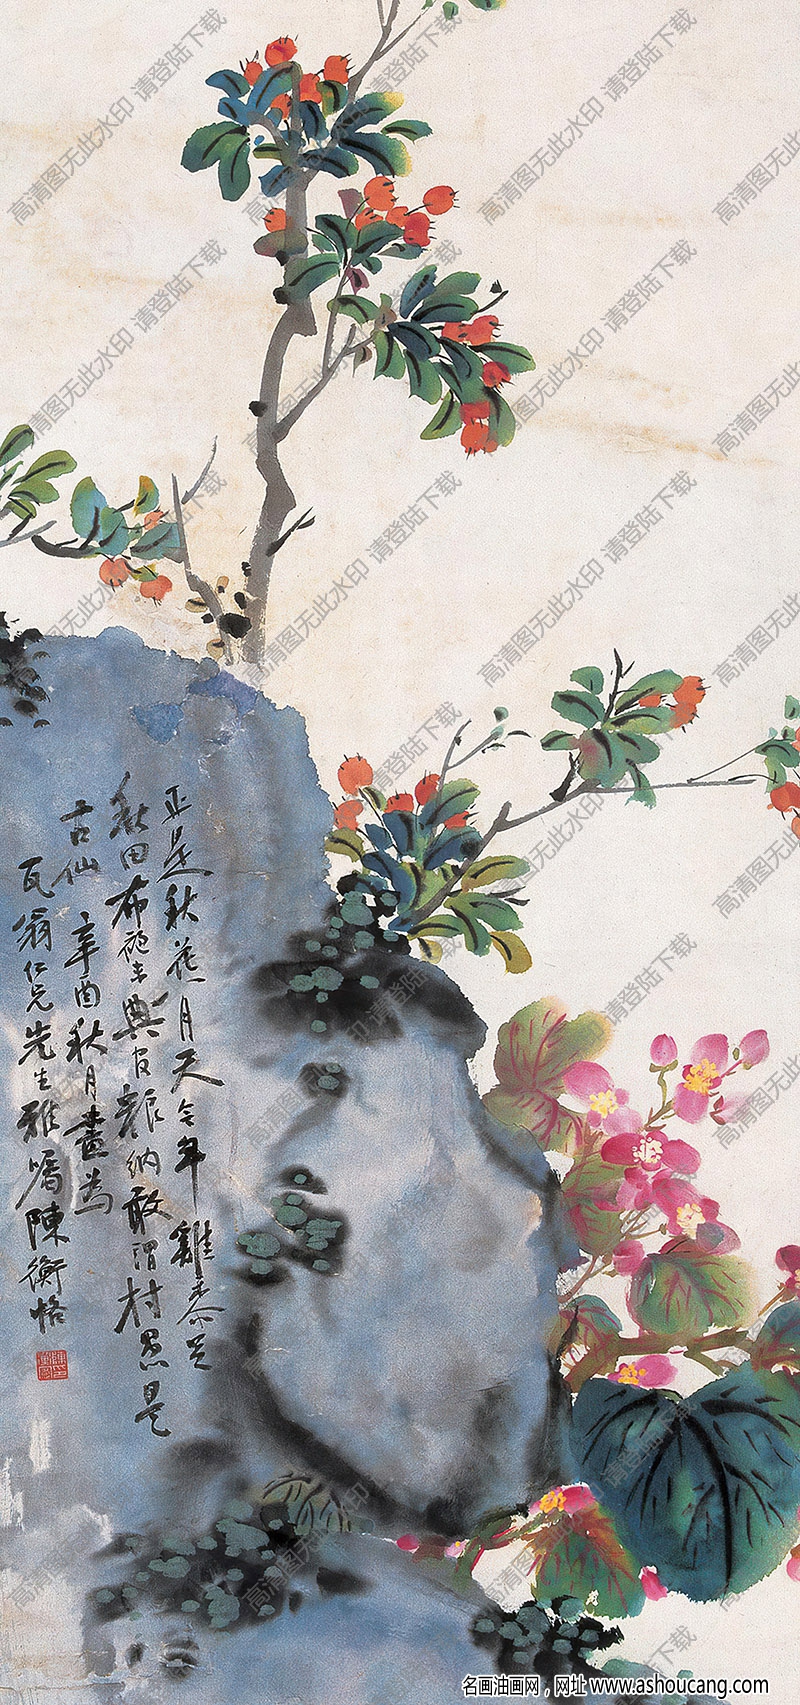 正是秋花月天今年雞黍足
秋田布袍未典官糧納敢謂村愚是
古仙 辛酉秋月畫為
瓦翁仁兄先生雅囑陳衡恪
高清图无此水印 请登陆下载
名画油画网，网址 www.ashoucang.com